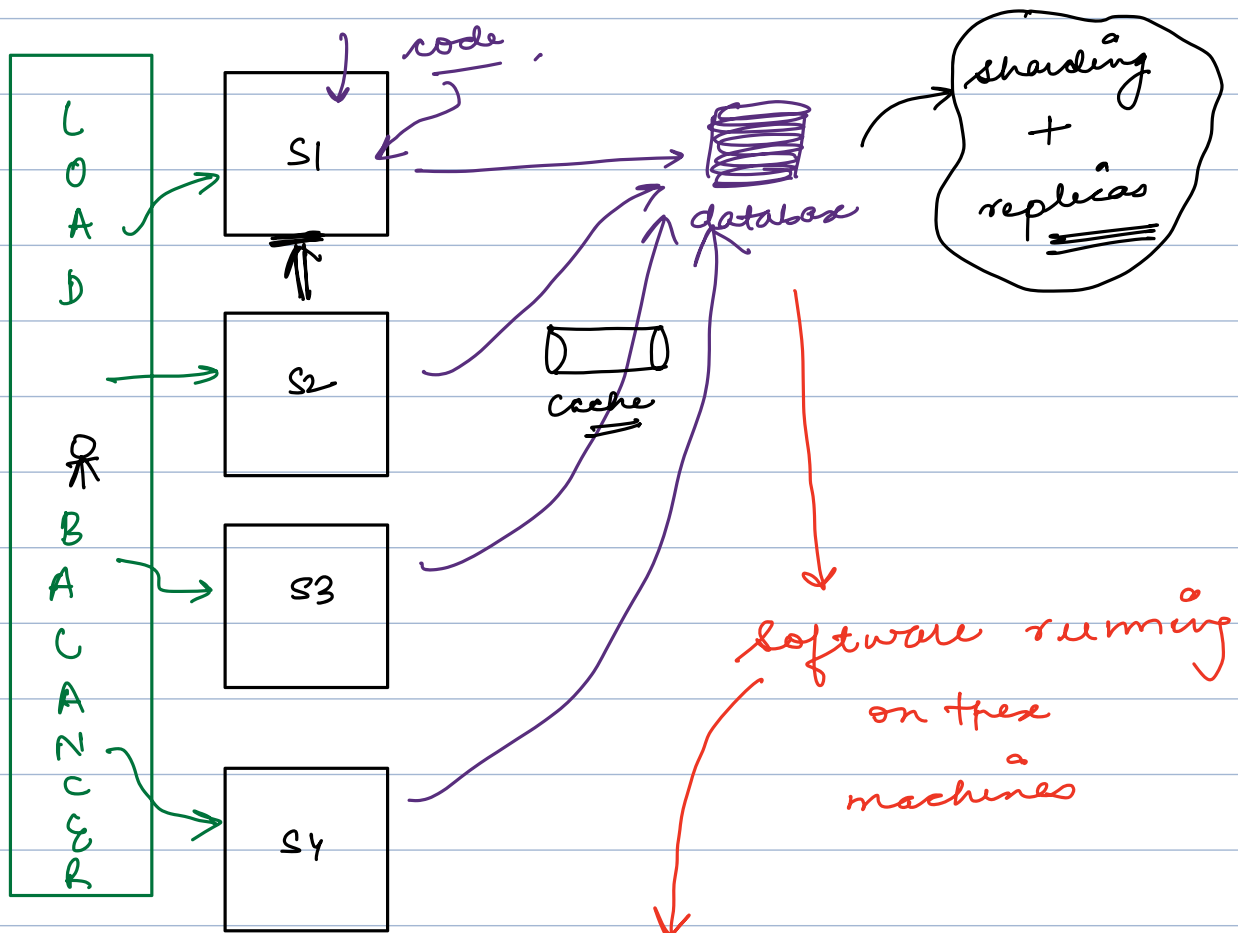 LOAD BALANCER
code
S1
S2
S3
S4
database
cache
sharding
+
replicas
software running
on these
machines